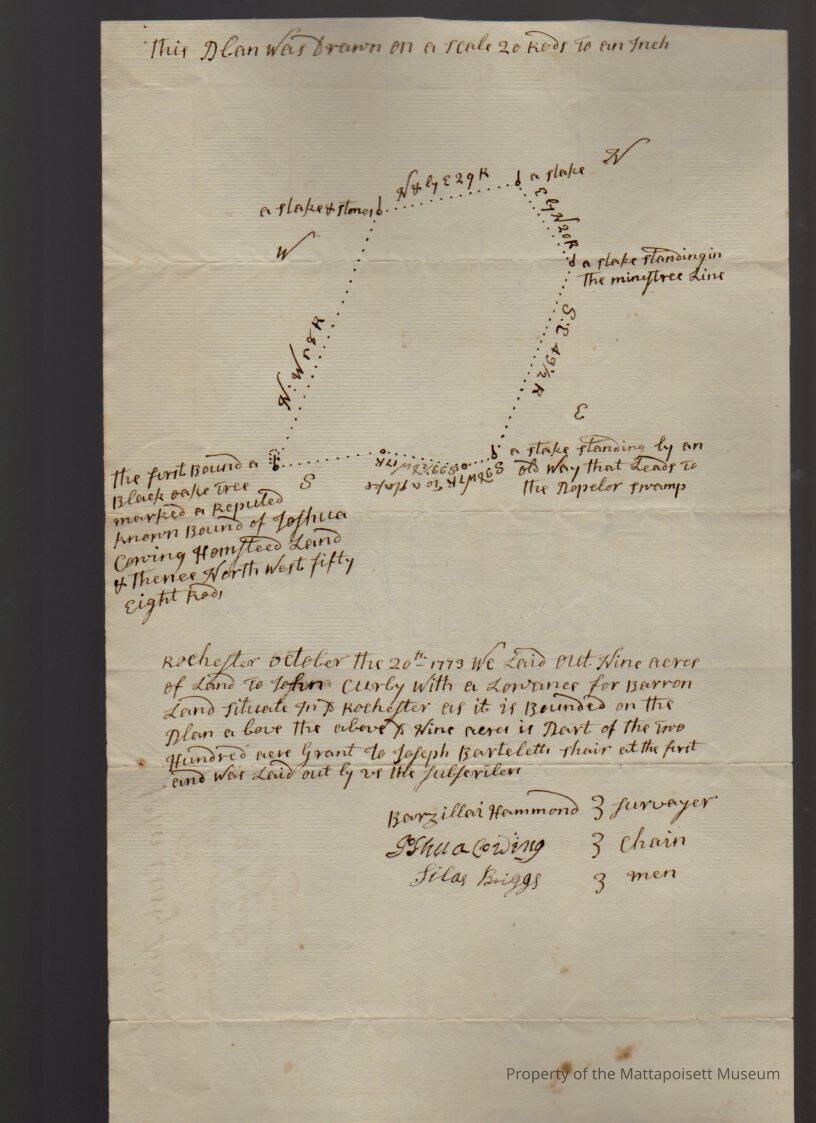 This Plan Was Drawn on a scale 20 Rods To an Inch
N
N & by E 29 R
a stake
a stake & stones
E by N 20 R
W
a stake standing in
The minystree Line
N: W 58 R
S: E 49 1/2 R
E
a stake standing by an
old Way that Leads To
the Popelor swamp
W 17 R
To a stake
S
the first Bound a
Black oake Tree
marked a Reputed
known Bound of Joshua
Cowing Homsteed Land
& Thence North West fifty
Eight Rods
Rochester october the 20th 1773 We Laid out Nine acres
of Land To John Curby With a Lowance for Barron
Land situate In sd Rochester as it is Bounded on the
Plan a bove the above sd Nine acres is Part of the Two
Hundred acre Grant To Joseph Barteletts shair at the first
and Was Laid out by us the subscribers
Barzillai Hammond 3 surveyer
Joshua Cowing 3 chain
Silas Briggs 3 men
Property of the Mattapoisett Museum